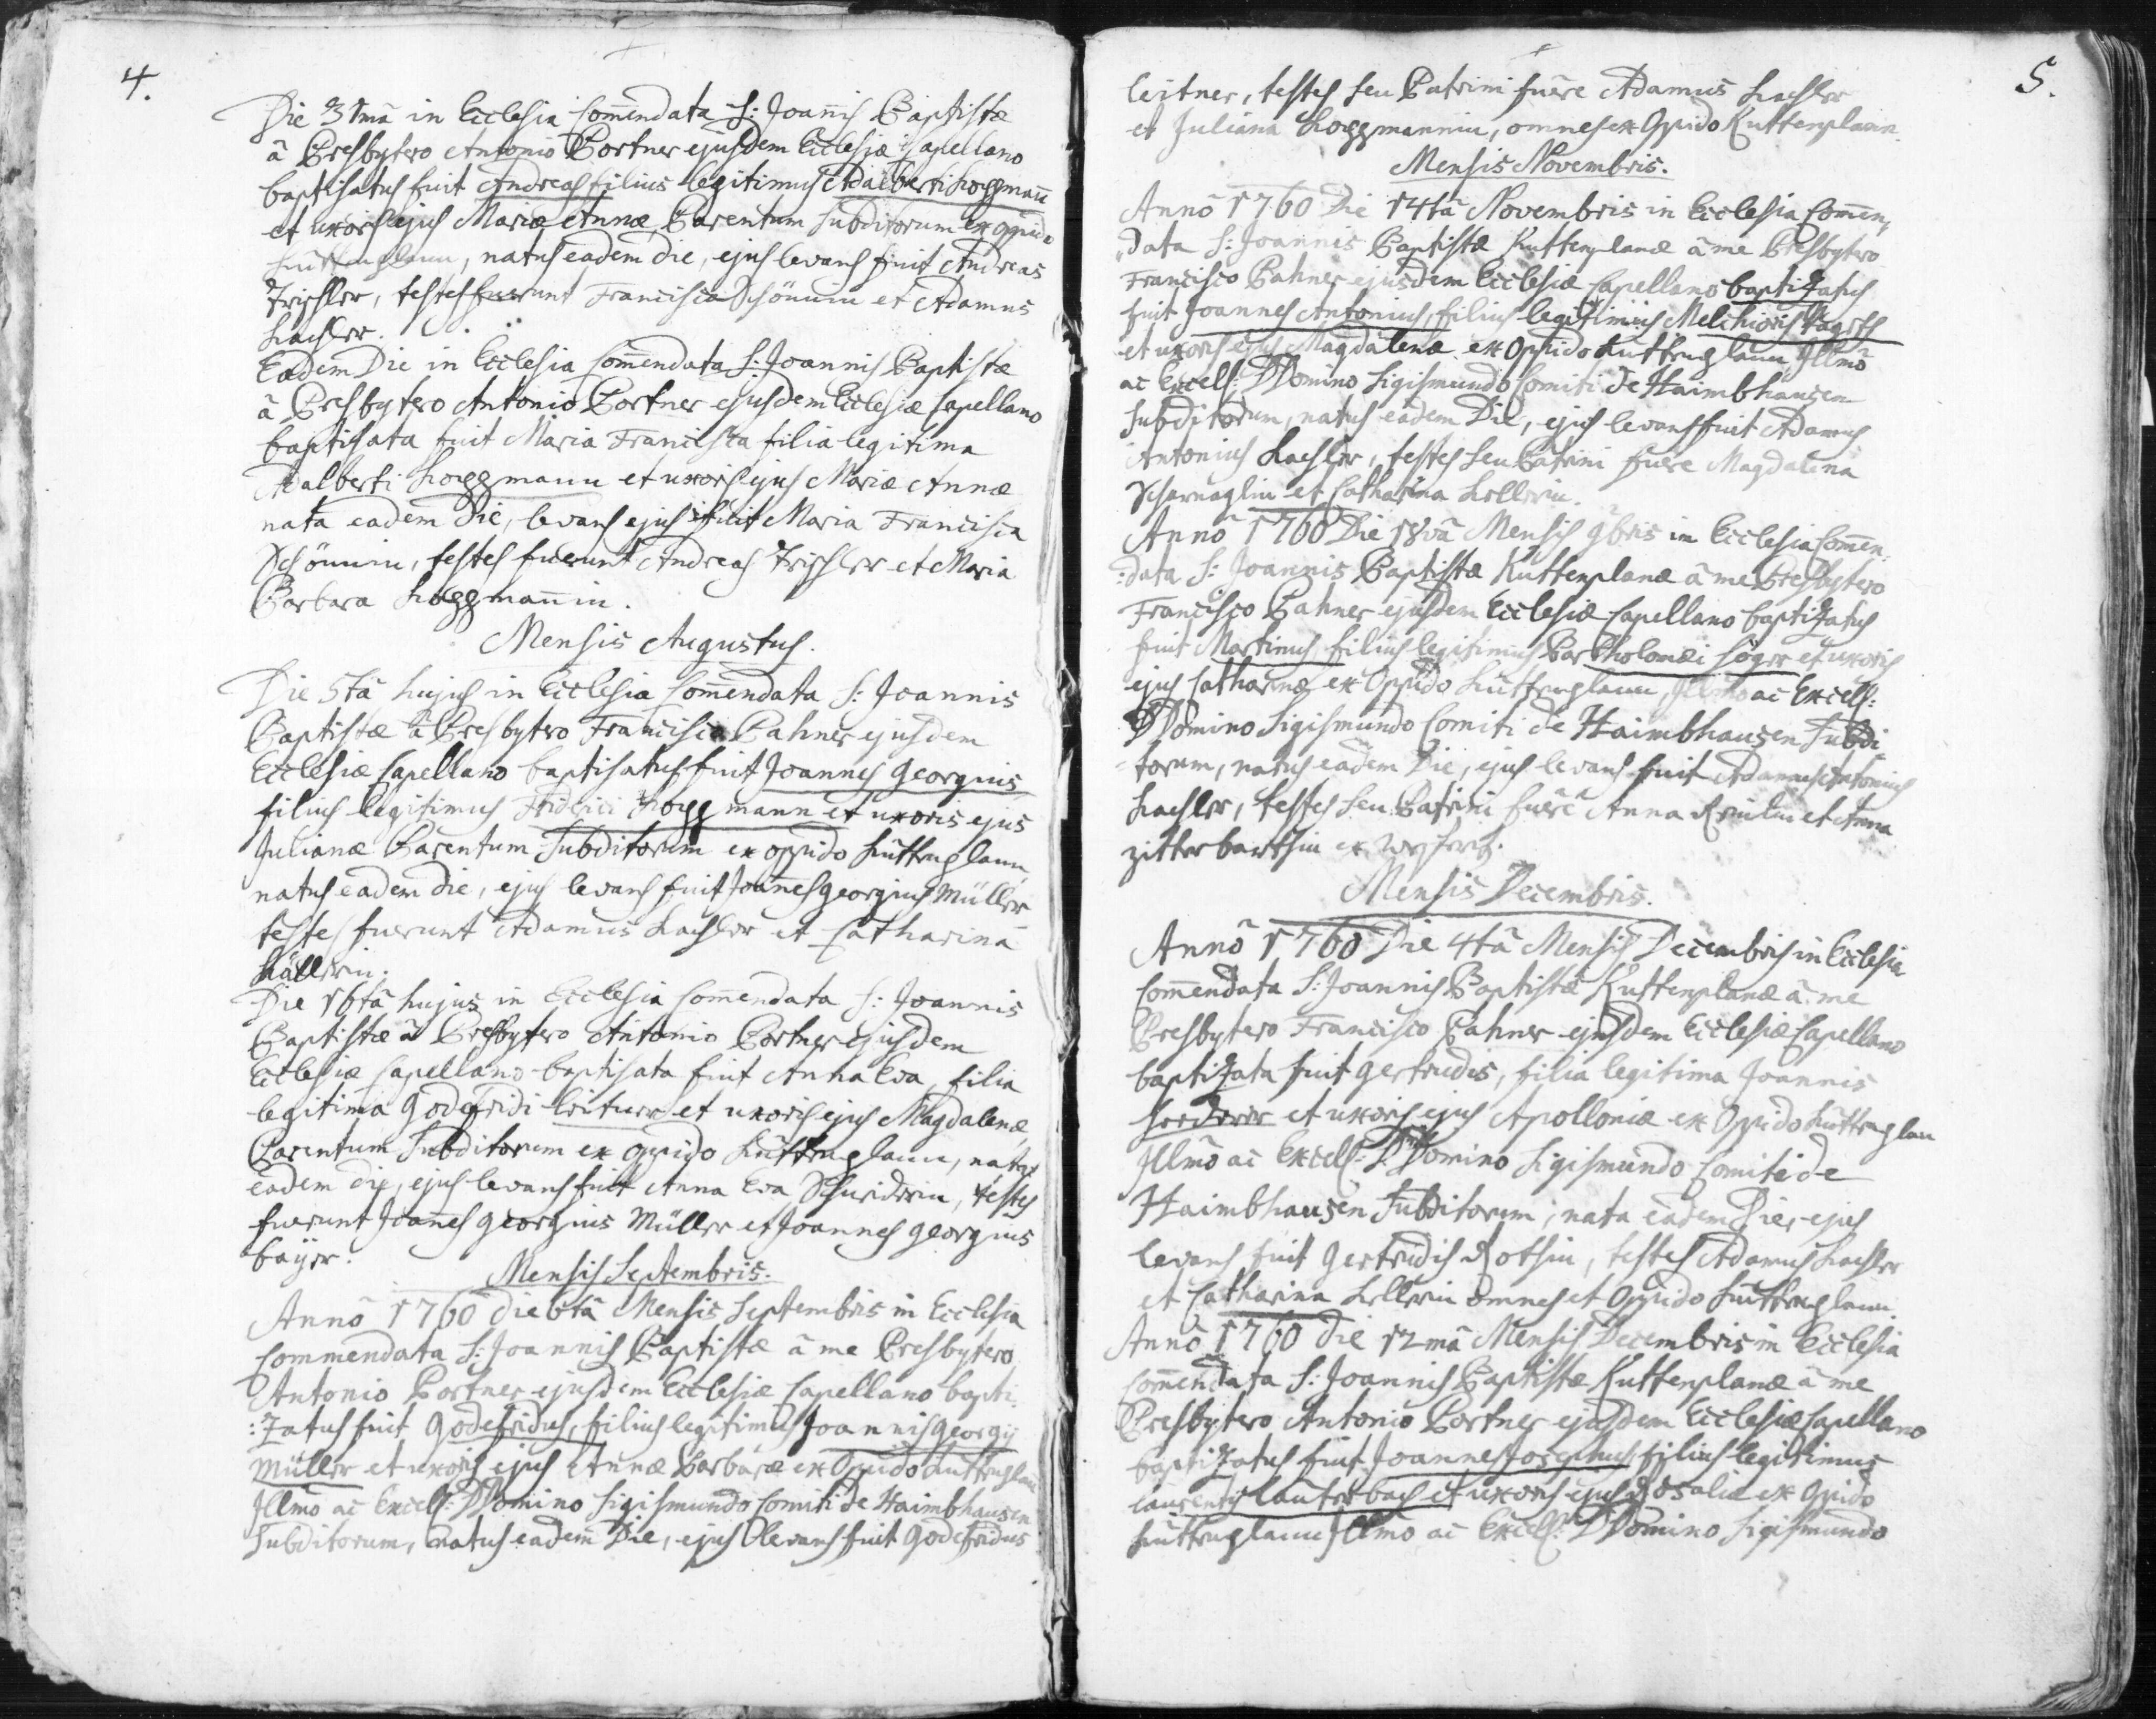 4.
Die 31mâ in Ecclesia Com̄endata S: Joan̄is Baptistæ
â Presbytero Antonio Portner ejusdem Ecclesiæ Capellano
baptisatus fuit Andreas filius legitimus Adalberti Koggman̄
et uxoris ejus Mariæ Annæ, Parentum Subditorum ex oppido
Kuttenplann, natus eadem die, ejus levans fuit Andreas
Trischler, testes fuerunt Francisca Schönnin et Adamus
Kachler.
Eadem Die in Ecclesia Com̄endata S: Joannis Baptistæ
â Presbytero Antonio Portner ejusdem Ecclesiæ Capellano
baptisata fuit Maria Francisca filia legitima
Adalberti Koggmann et uxoris ejus Mariæ Annæ
nata eadem die, levans ejus fuit Maria Francisca
Schönnin, testes fuerunt Andreas Trischler et Maria
Barbara Koggman̄in.
Mensis Augustus.
Die 5tâ hujus in Ecclesia Com̄endata S: Joannis
Baptistæ â Presbytero Francisco Pahner ejusdem
Ecclesiæ Capellano baptisatus fuit Joannes Georgius
filius legitimus Friderici Koggmann et uxoris ejus
Julianæ Parentum Subditorum ex oppido Kuttenplann,
natus eadem die, ejus levans fuit Joan̄es Georgius Müller
testes fuerunt Adamus Kachler et Catharina
Källerin.
Die 16tâ hujus in Ecclesia Com̄endata S: Joannis
Baptistæ â Presbytero Antonio Portner ejusdem
Ecclesiæ Capellano baptisata fuit Anna Eva, filia
legitima Godefridi Leitner et uxoris ejus Magdalenæ,
Parentum Subditorum ex oppido Kuttenplann, nata
eadem die, ejus levans fuit Anna Eva Schneiderin, testes
fuerunt Joan̄es Georgius Müller et Joannes Georgius
Bayer.
Mensis Septembris.
Annô 1760 die 6tâ Mensis Septembris in Ecclesia
Commendata S: Joannis Baptistæ â me Presbytero
Antonio Portner ejusdem Ecclesiæ Capellano bapti¬
:zatus fuit Godefridus, filius legitimus Joannis Georgij
Müller et uxoris ejus Annæ Barbaræ ex Oppido Kuttenplan̄
Illmo ac Excell: DDomino Sigismundo Comiti de Haimbhausen
Subditorum, natus eadem Die, ejus levans fuit Godefridus
5.
Leitner, testes seu Patrini fuêre Adamus Kachler
et Juliana Koggmannin, omnes ex Oppido Kuttenplann.
Mensis Novembris.
Annô 1760 Die 14tâ Novembris in Ecclesia Com̄en¬
:data S: Joannis Baptistæ Kuttenplanæ â me Presbytero
Francisco Pahner ejusdem Ecclesiæ Capellano baptizatus
fuit Joannes Antonius, filius legitimus Melchioris
et uxoris ejus Magdalenæ ex Oppido Kuttenplann, Illmô
ac Excell: DDomino Sigismundo Comiti de Haimbhausen
Subditorum, natus eâdem Die, ejus levans fuit Adamus
Antonius Kachler, testes seu Patrini fuêre Magdalena
Scharnaglin et Catharina Kellerin.
Annô 1760 Die 18vâ Mensis 9bris in Ecclesia Com̄en¬
:data S: Joannis Baptistæ Kuttenplanæ â me Presbytero
Francisco Pahner ejusdem Ecclesiæ Capellano baptizatus
fuit Martinus filius legitimus Bartholomæi Höger et uxoris
ejus Catharinæ ex Oppido Kuttenplann, Illmo ac Excell:
DDomino Sigismundo Comiti de Haimbhausen Subdi
-torum, natus eâdem Die, ejus levans fuit Adamus Antonius
Kachler, testes seu Patrini fuêre Anna et Anna
Zitterbarthin ex
Mensis Decembris.
Annô 1760 Die 4tâ Mensis Decembris in Ecclesia
Com̄endata S: Joannis Baptistæ Kuttenplanæ â me
Presbytero Francisco Pahner ejusdem Ecclesiæ Capellano
baptizata fuit Gertrudis, filia legitima Joannis
et uxoris ejus Apolloniæ ex Oppido Kuttenplan
Illmô ac Excell: DDomino Sigismundo Comiti de
Haimbhausen Subditorum, nata eâdem Die, ejus
levans fuit Gertrudis Rothin, testes Adamus Kachler
et Catharina Kellerin omnes et Oppido Kuttenplann.
Annô 1760 die 12mâ Mensis Decembris in Ecclesia
Com̄endata S: Joannis Baptistæ Kuttenplanæ â me
Presbytero Antonio Portner ejusdem Ecclesiæ Capellano
baptizatus fuit Joannes Josephus filius legitimus
Laurentij Lauterbach et uxoris ejus Rosaliæ ex Oppido
Kuttenplann Illmo ac Excell: DDomino Sigismundo